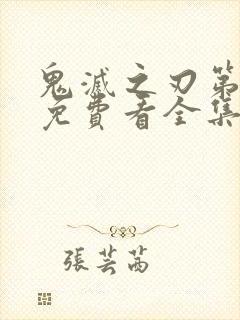 鬼滅之刃第
免費看全集
張芸茜